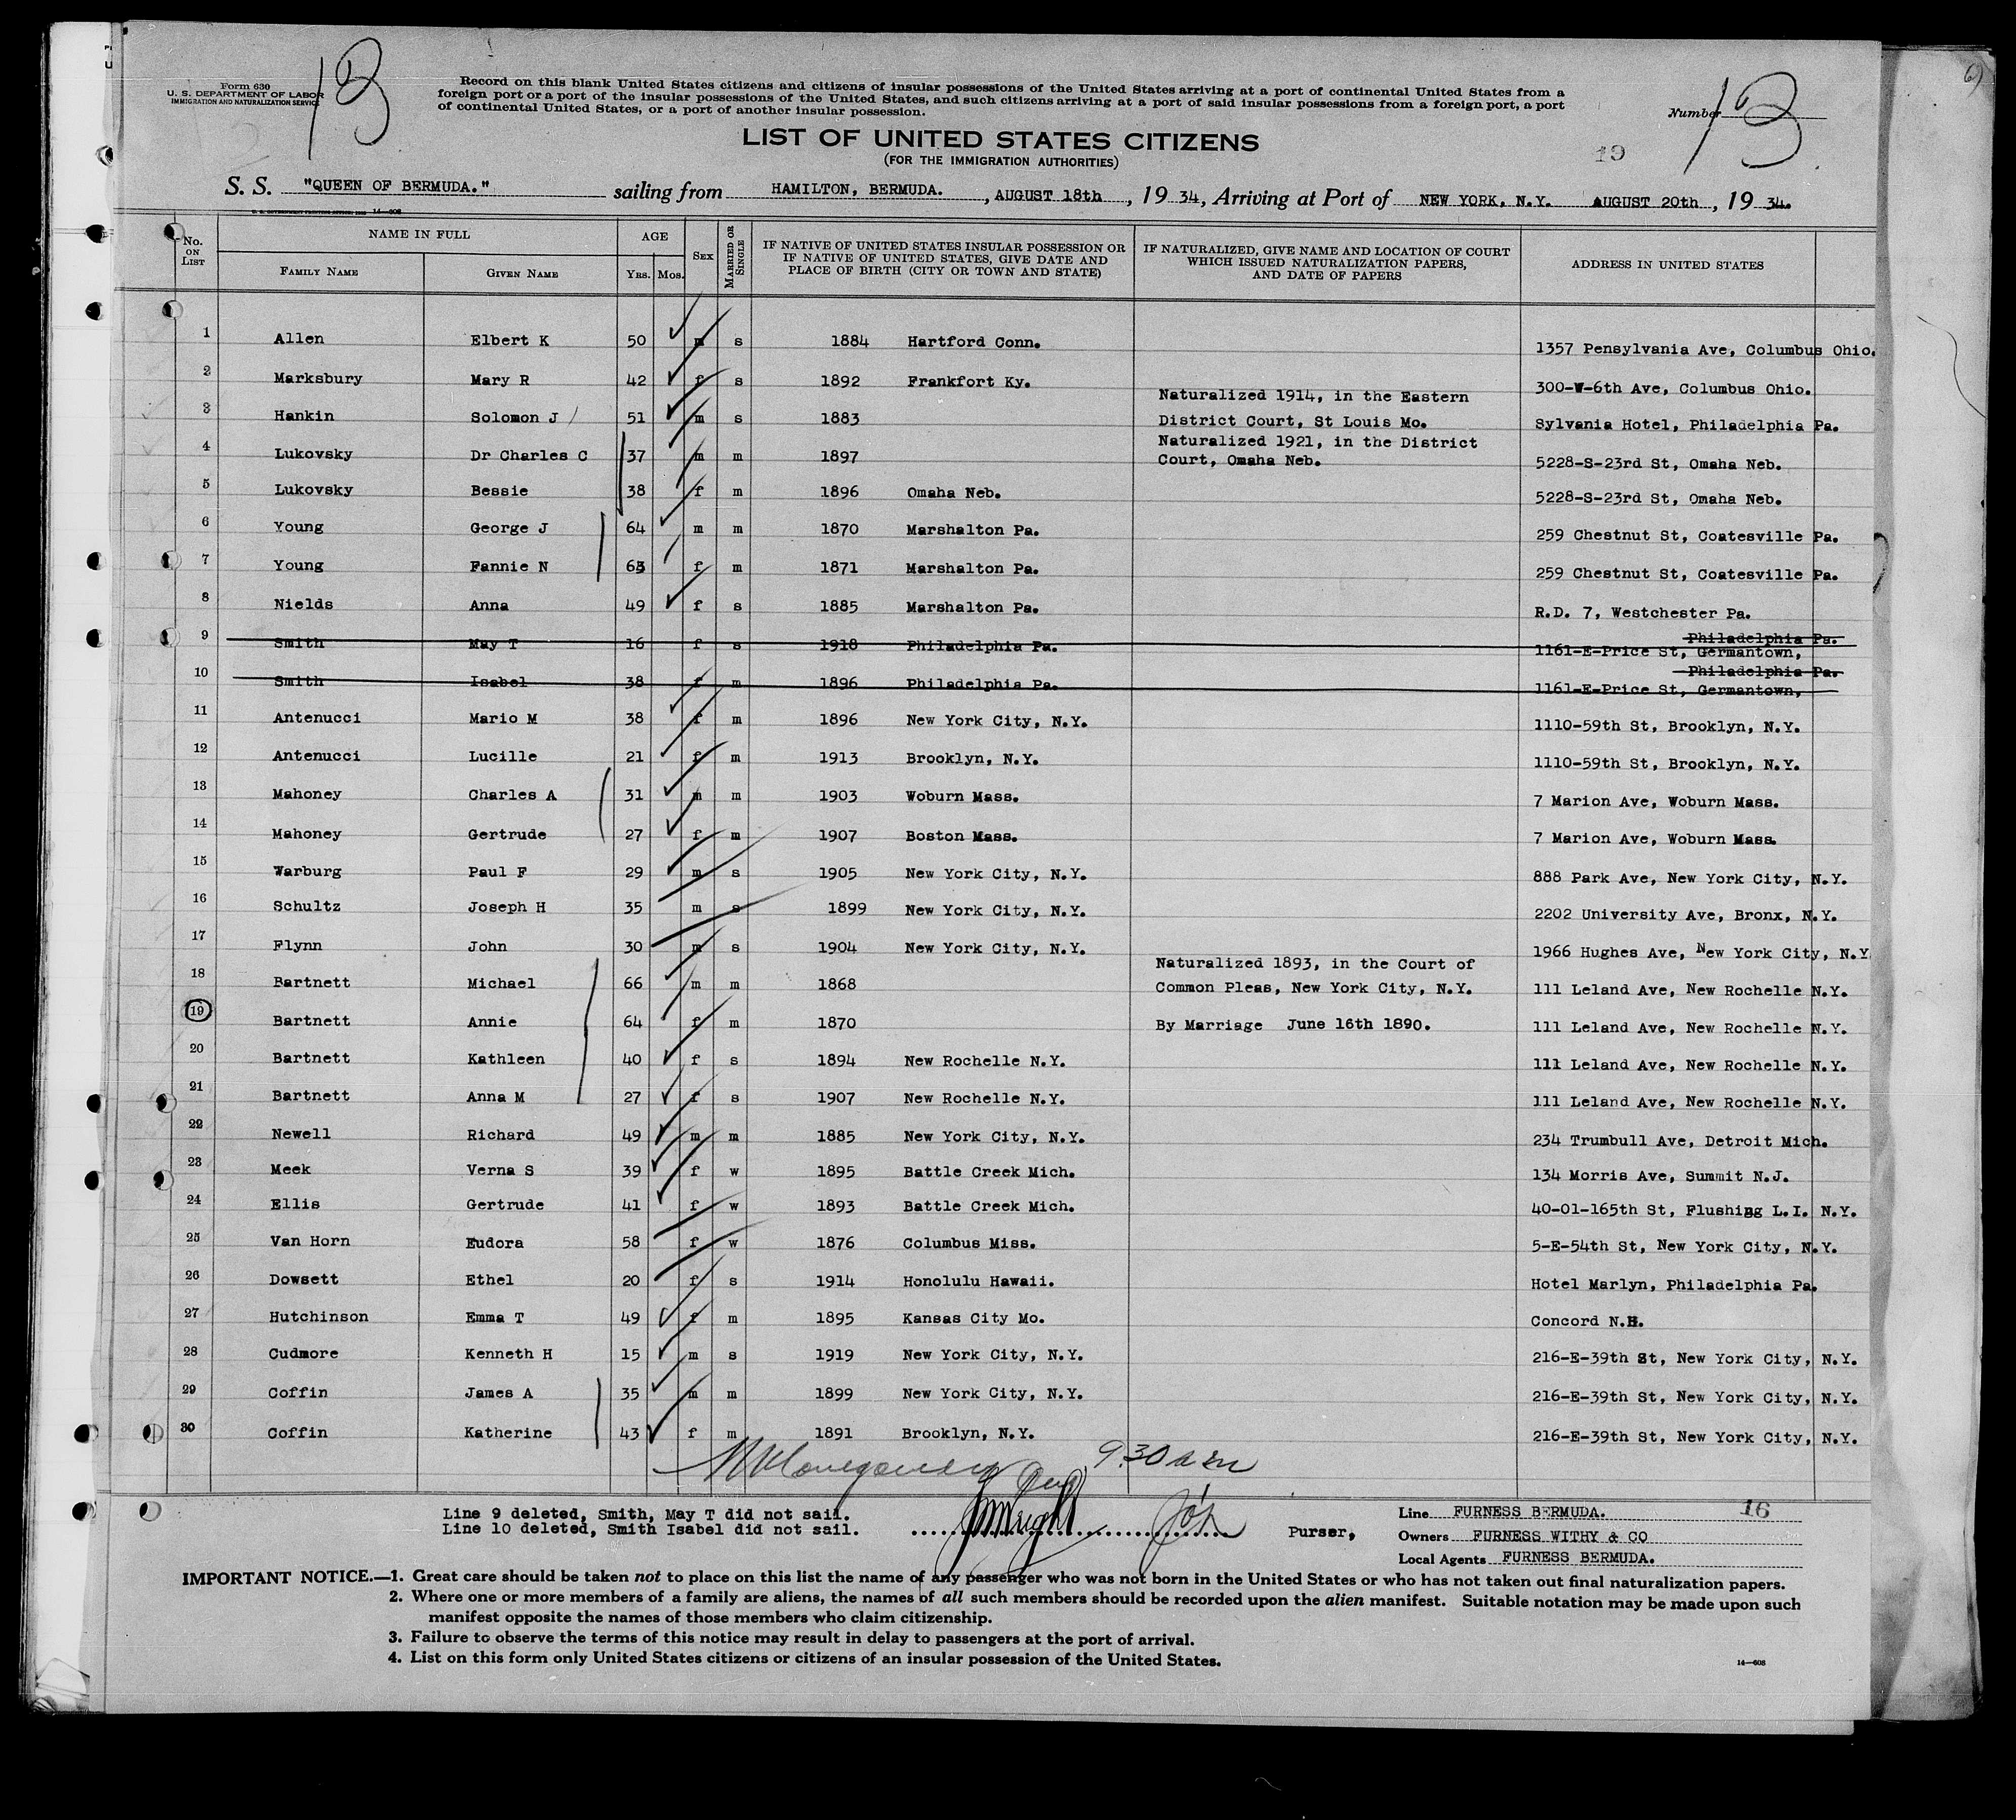 Form 630
U. S. DEPARTMENT OF LABOR
IMMIGRATION AND NATURALIZATION SERVICE
13
Record on this blank United States citizens and citizens of insular possessions of the United States arriving at a port of continental United States from a
foreign port or a port of the insular possessions of the United States, and such citizens arriving at a port of said insular possessions from a foreign port, a port
of continental United States, or a port of another insular possession.
Number 13
LIST OF UNITED STATES CITIZENS
(FOR THE IMMIGRATION AUTHORITIES)
19
S. S. "QUEEN OF BERMUDA." sailing from HAMILTON, BERMUDA. , AUGUST 18th , 19 34, Arriving at Port of NEW YORK, N.Y. AUGUST 20th , 19 34.
No. ON LIST NAME IN FULL FAMILY NAME GIVEN NAME AGE YRS. MOS. SEX MARRIED OR SINGLE IF NATIVE OF UNITED STATES INSULAR POSSESSION OR IF NATIVE OF UNITED STATES, GIVE DATE AND PLACE OF BIRTH (CITY OR TOWN AND STATE) IF NATURALIZED, GIVE NAME AND LOCATION OF COURT WHICH ISSUED NATURALIZATION PAPERS, AND DATE OF PAPERS ADDRESS IN UNITED STATES
1 Allen Elbert K 50 m s 1884 Hartford Conn. 1357 Pensylvania Ave, Columbus Ohio.
2 Marksbury Mary R 42 f s 1892 Frankfort Ky. 300-W-6th Ave, Columbus Ohio.
Naturalized 1914, in the Eastern
3 Hankin Solomon J 51 m s 1883 District Court, St Louis Mo. Sylvania Hotel, Philadelphia Pa.
Naturalized 1921, in the District
4 Lukovsky Dr Charles C 37 m m 1897 Court, Omaha Neb. 5228-S-23rd St, Omaha Neb.
5 Lukovsky Bessie 38 f m 1896 Omaha Neb. 5228-S-23rd St, Omaha Neb.
6 Young George J 64 m m 1870 Marshalton Pa. 259 Chestnut St, Coatesville Pa.
7 Young Fannie N 63 f m 1871 Marshalton Pa. 259 Chestnut St, Coatesville Pa.
8 Nields Anna 49 f s 1885 Marshalton Pa. R.D. 7, Westchester Pa.
Philadelphia Pa.
9 Smith May T 16 f s 1918 Philadelphia Pa. 1161-E-Price St, Germantown,
Philadelphia Pa.
10 Smith Isabel 38 f m 1896 Philadelphia Pa. 1161-E-Price St, Germantown,
11 Antenucci Mario M 38 f m 1896 New York City, N.Y. 1110-59th St, Brooklyn, N.Y.
12 Antenucci Lucille 21 f m 1913 Brooklyn, N.Y. 1110-59th St, Brooklyn, N.Y.
13 Mahoney Charles A 31 m m 1903 Woburn Mass. 7 Marion Ave, Woburn Mass.
14 Mahoney Gertrude 27 f m 1907 Boston Mass. 7 Marion Ave, Woburn Mass.
15 Warburg Paul F 29 m s 1905 New York City, N.Y. 888 Park Ave, New York City, N.Y.
16 Schultz Joseph H 35 m s 1899 New York City, N.Y. 2202 University Ave, Bronx, N.Y.
17 Flynn John 30 m s 1904 New York City, N.Y. 1966 Hughes Ave, New York City, N.Y.
Naturalized 1893, in the Court of
18 Bartnett Michael 66 m m 1868 Common Pleas, New York City, N.Y. 111 Leland Ave, New Rochelle N.Y.
19 Bartnett Annie 64 f m 1870 By Marriage June 16th 1890. 111 Leland Ave, New Rochelle N.Y.
20 Bartnett Kathleen 40 f s 1894 New Rochelle N.Y. 111 Leland Ave, New Rochelle N.Y.
21 Bartnett Anna M 27 f s 1907 New Rochelle N.Y. 111 Leland Ave, New Rochelle N.Y.
22 Newell Richard 49 m m 1885 New York City, N.Y. 234 Trumbull Ave, Detroit Mich.
23 Meek Verna S 39 f w 1895 Battle Creek Mich. 134 Morris Ave, Summit N.J.
24 Ellis Gertrude 41 f w 1893 Battle Creek Mich. 40-01-165th St, Flushing L.I. N.Y.
25 Van Horn Eudora 58 f w 1876 Columbus Miss. 5-E-54th St, New York City, N.Y.
26 Dowsett Ethel 20 f s 1914 Honolulu Hawaii. Hotel Marlyn, Philadelphia Pa.
27 Hutchinson Emma T 49 f m 1895 Kansas City Mo. Concord N.H.
28 Cudmore Kenneth H 15 m s 1919 New York City, N.Y. 216-E-39th St, New York City, N.Y.
29 Coffin James A 35 m m 1899 New York City, N.Y. 216-E-39th St, New York City, N.Y.
30 Coffin Katherine 43 f m 1891 Brooklyn, N.Y. 216-E-39th St, New York City, N.Y.
9.30 a m
Line 9 deleted, Smith, May T did not sail.
Line 10 deleted, Smith Isabel did not sail.
Purser,
Line FURNESS BERMUDA. 16
Owners FURNESS WITHY & CO
Local Agents FURNESS BERMUDA.
IMPORTANT NOTICE.—1. Great care should be taken not to place on this list the name of any passenger who was not born in the United States or who has not taken out final naturalization papers.
2. Where one or more members of a family are aliens, the names of all such members should be recorded upon the alien manifest. Suitable notation may be made upon such
manifest opposite the names of those members who claim citizenship.
3. Failure to observe the terms of this notice may result in delay to passengers at the port of arrival.
4. List on this form only United States citizens or citizens of an insular possession of the United States.
14—608